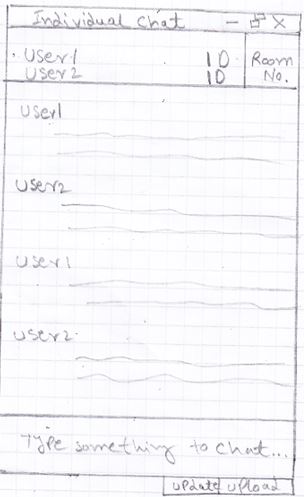 Individual Chat
User1 10
User2 10
Room No.
User1
User2
User1
User2
Type something to chat...
update upload